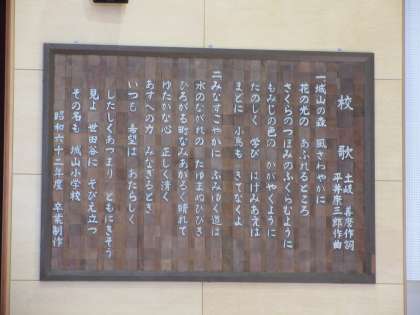 校歌
土岐善麿作詞
平井康三郎作曲
一城山の森 風さわやかに
花の光の あふれるところ
さくらのつぼみのふくらむように
もみじの色の かがやくように
たのしく 学び はげみあえば
まどに 小鳥も きてなくよ
二みなすこやかに ふみゆく道は
水のながれの たゆまぬひびき
ひろがる町なみあかるく晴れて
ゆたかな心 正しく清く
あすへの力 みなぎるとき
いつも 希望は あたらしく
したしくあつまり ともにきそう
見よ 世田谷に そびえ立つ
その名も 城山小学校
昭和六十二年度 卒業制作